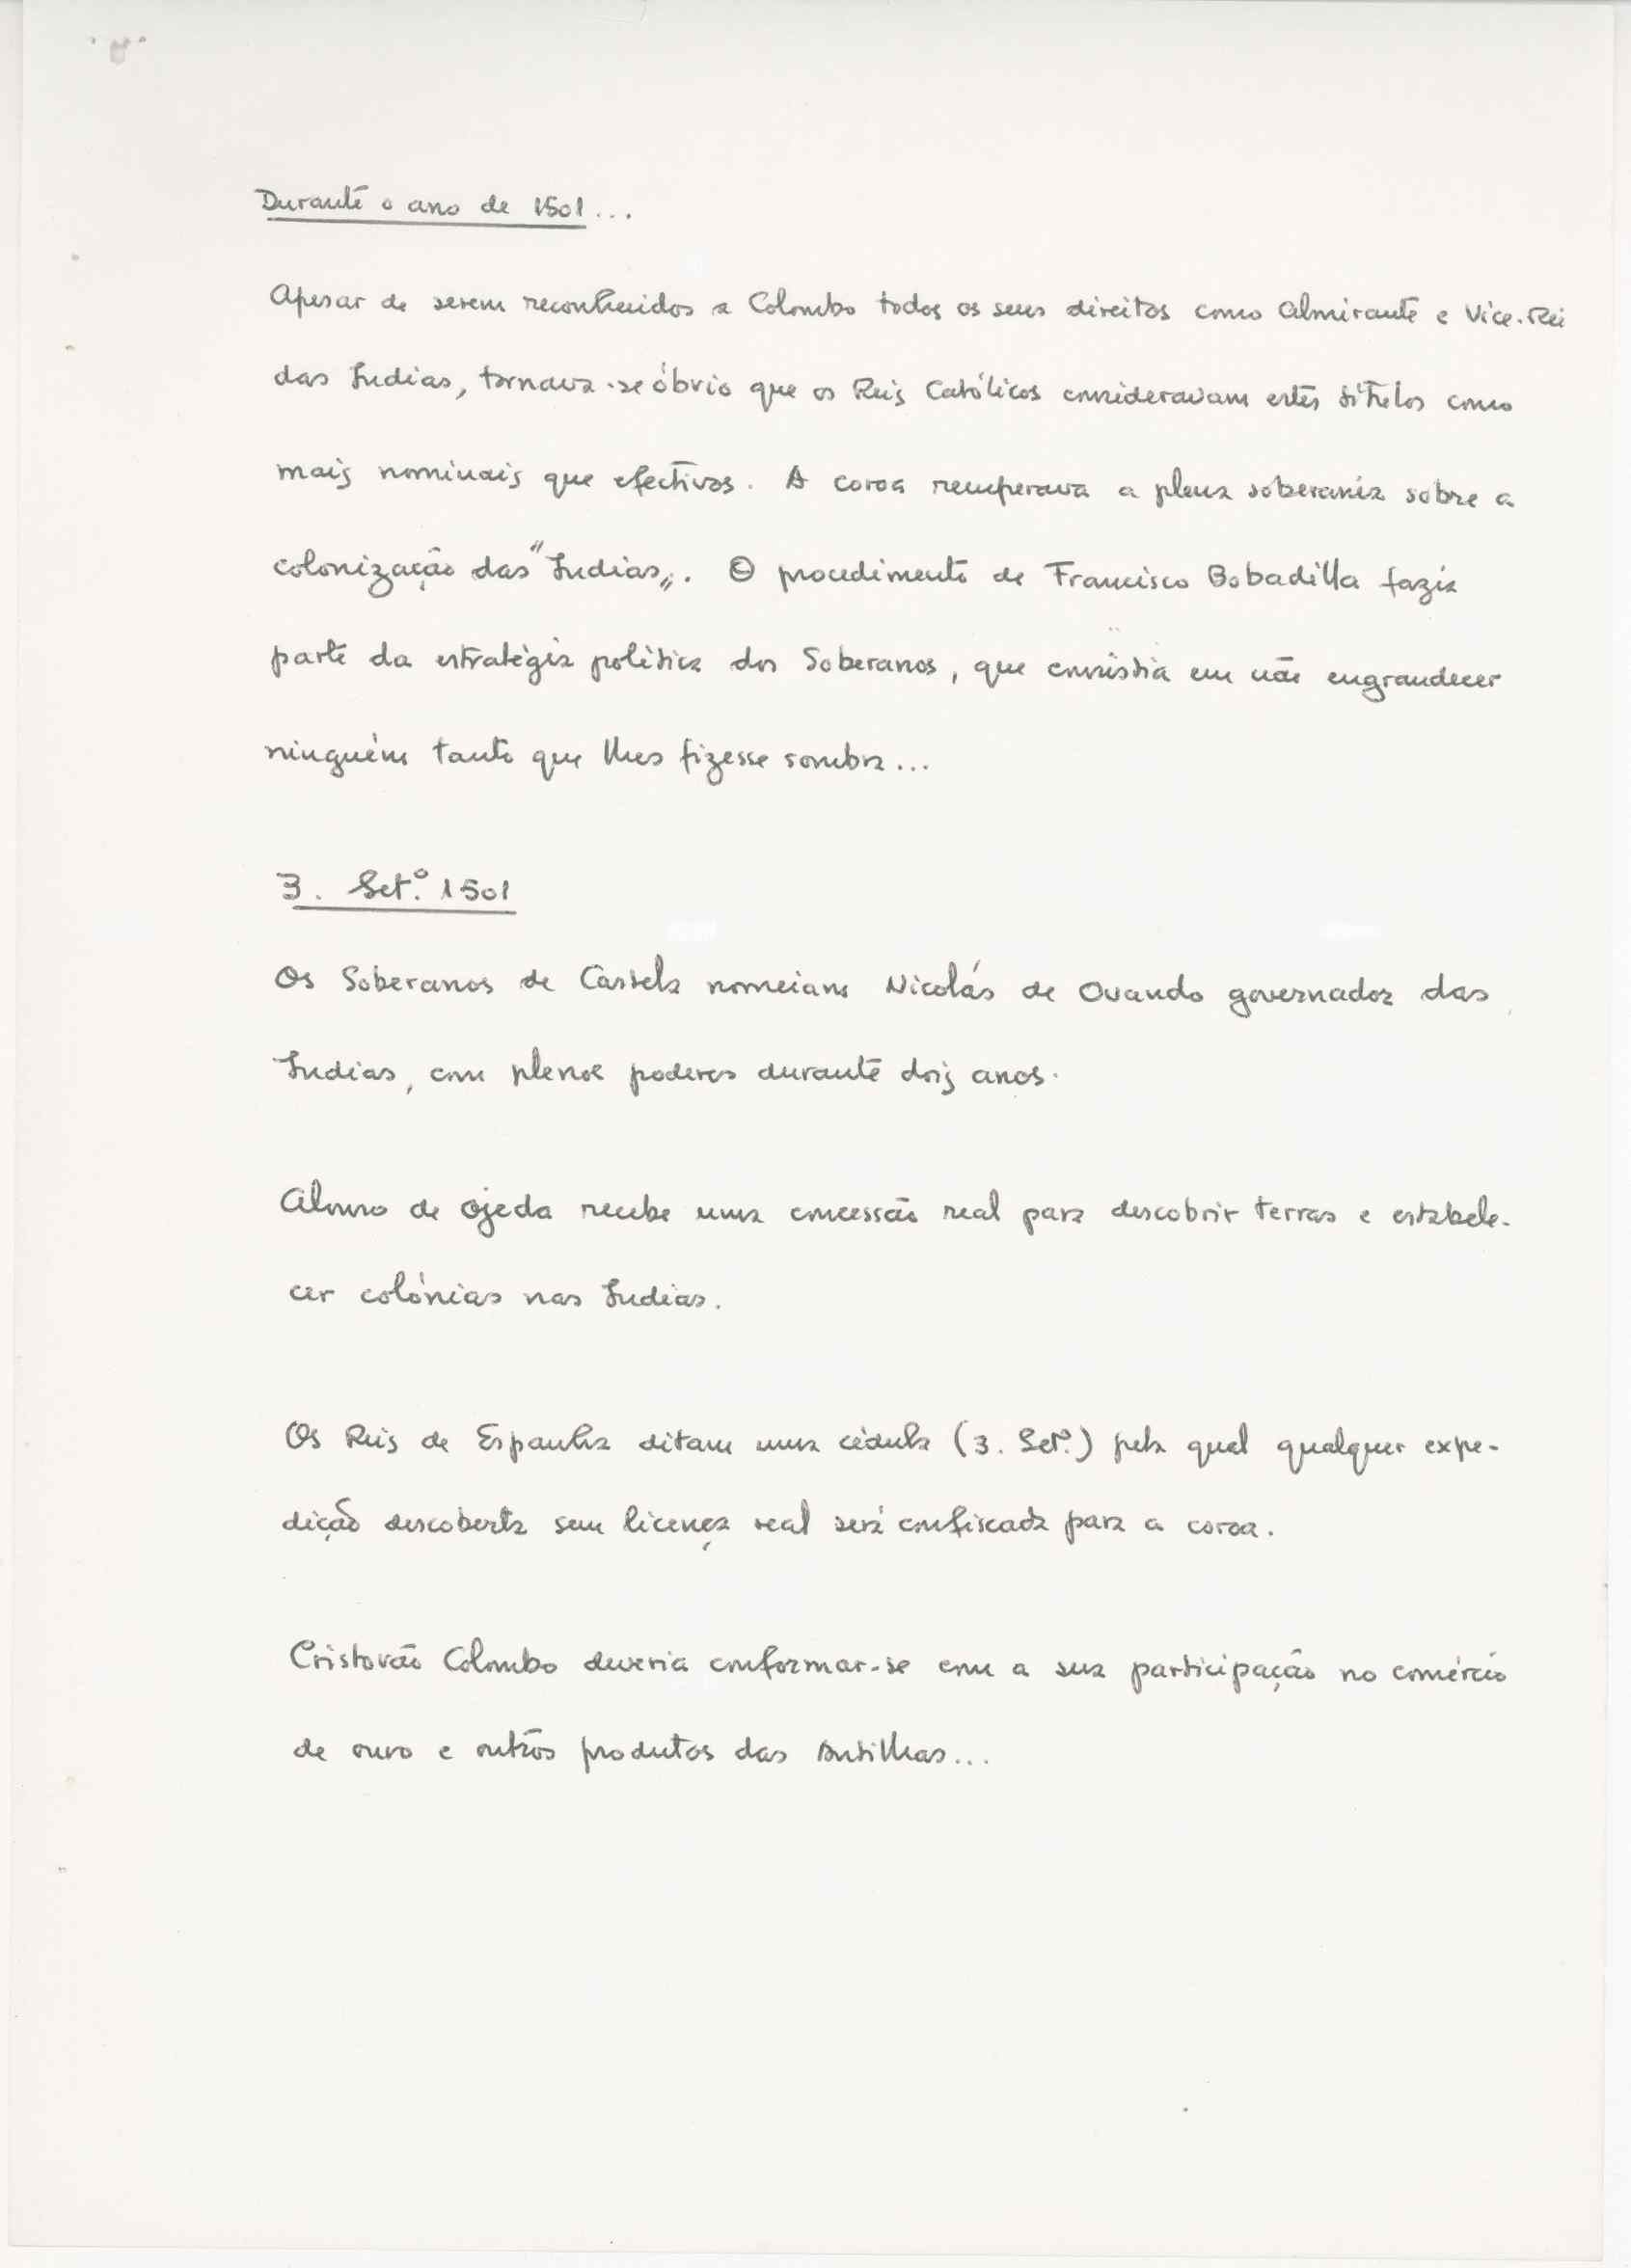 Durante o ano de 1501...
Apesar de serem reconhecidos a Colombo todos os seus direitos como Almirante e Vice-Rei
das Indias, tornava-se óbvio que os Reis Católicos consideravam estes títulos como
mais nominais que efectivos. A coroa recuperava a plena soberania sobre a
colonização das "Indias". O procedimento de Francisco Bobadilla fazia
parte da estratégia política dos Soberanos, que consistia em não engrandecer
ninguém tanto que lhes fizesse sombra...
3. Set.º 1501
Os Soberanos de Castela nomeiam Nicolás de Ovando governador das
Indias, com plenos poderes durante dois anos.
Alonso de Ojeda recebe uma concessão real para descobrir terras e estabele-
cer colónias nas Indias.
Os Reis de Espanha ditam uma cédula (3. Set.º) pela qual qualquer expe-
dição descoberta sem licença real será confiscada para a coroa.
Cristovão Colombo deveria conformar-se com a sua participação no comércio
de ouro e outros produtos das Antilhas...